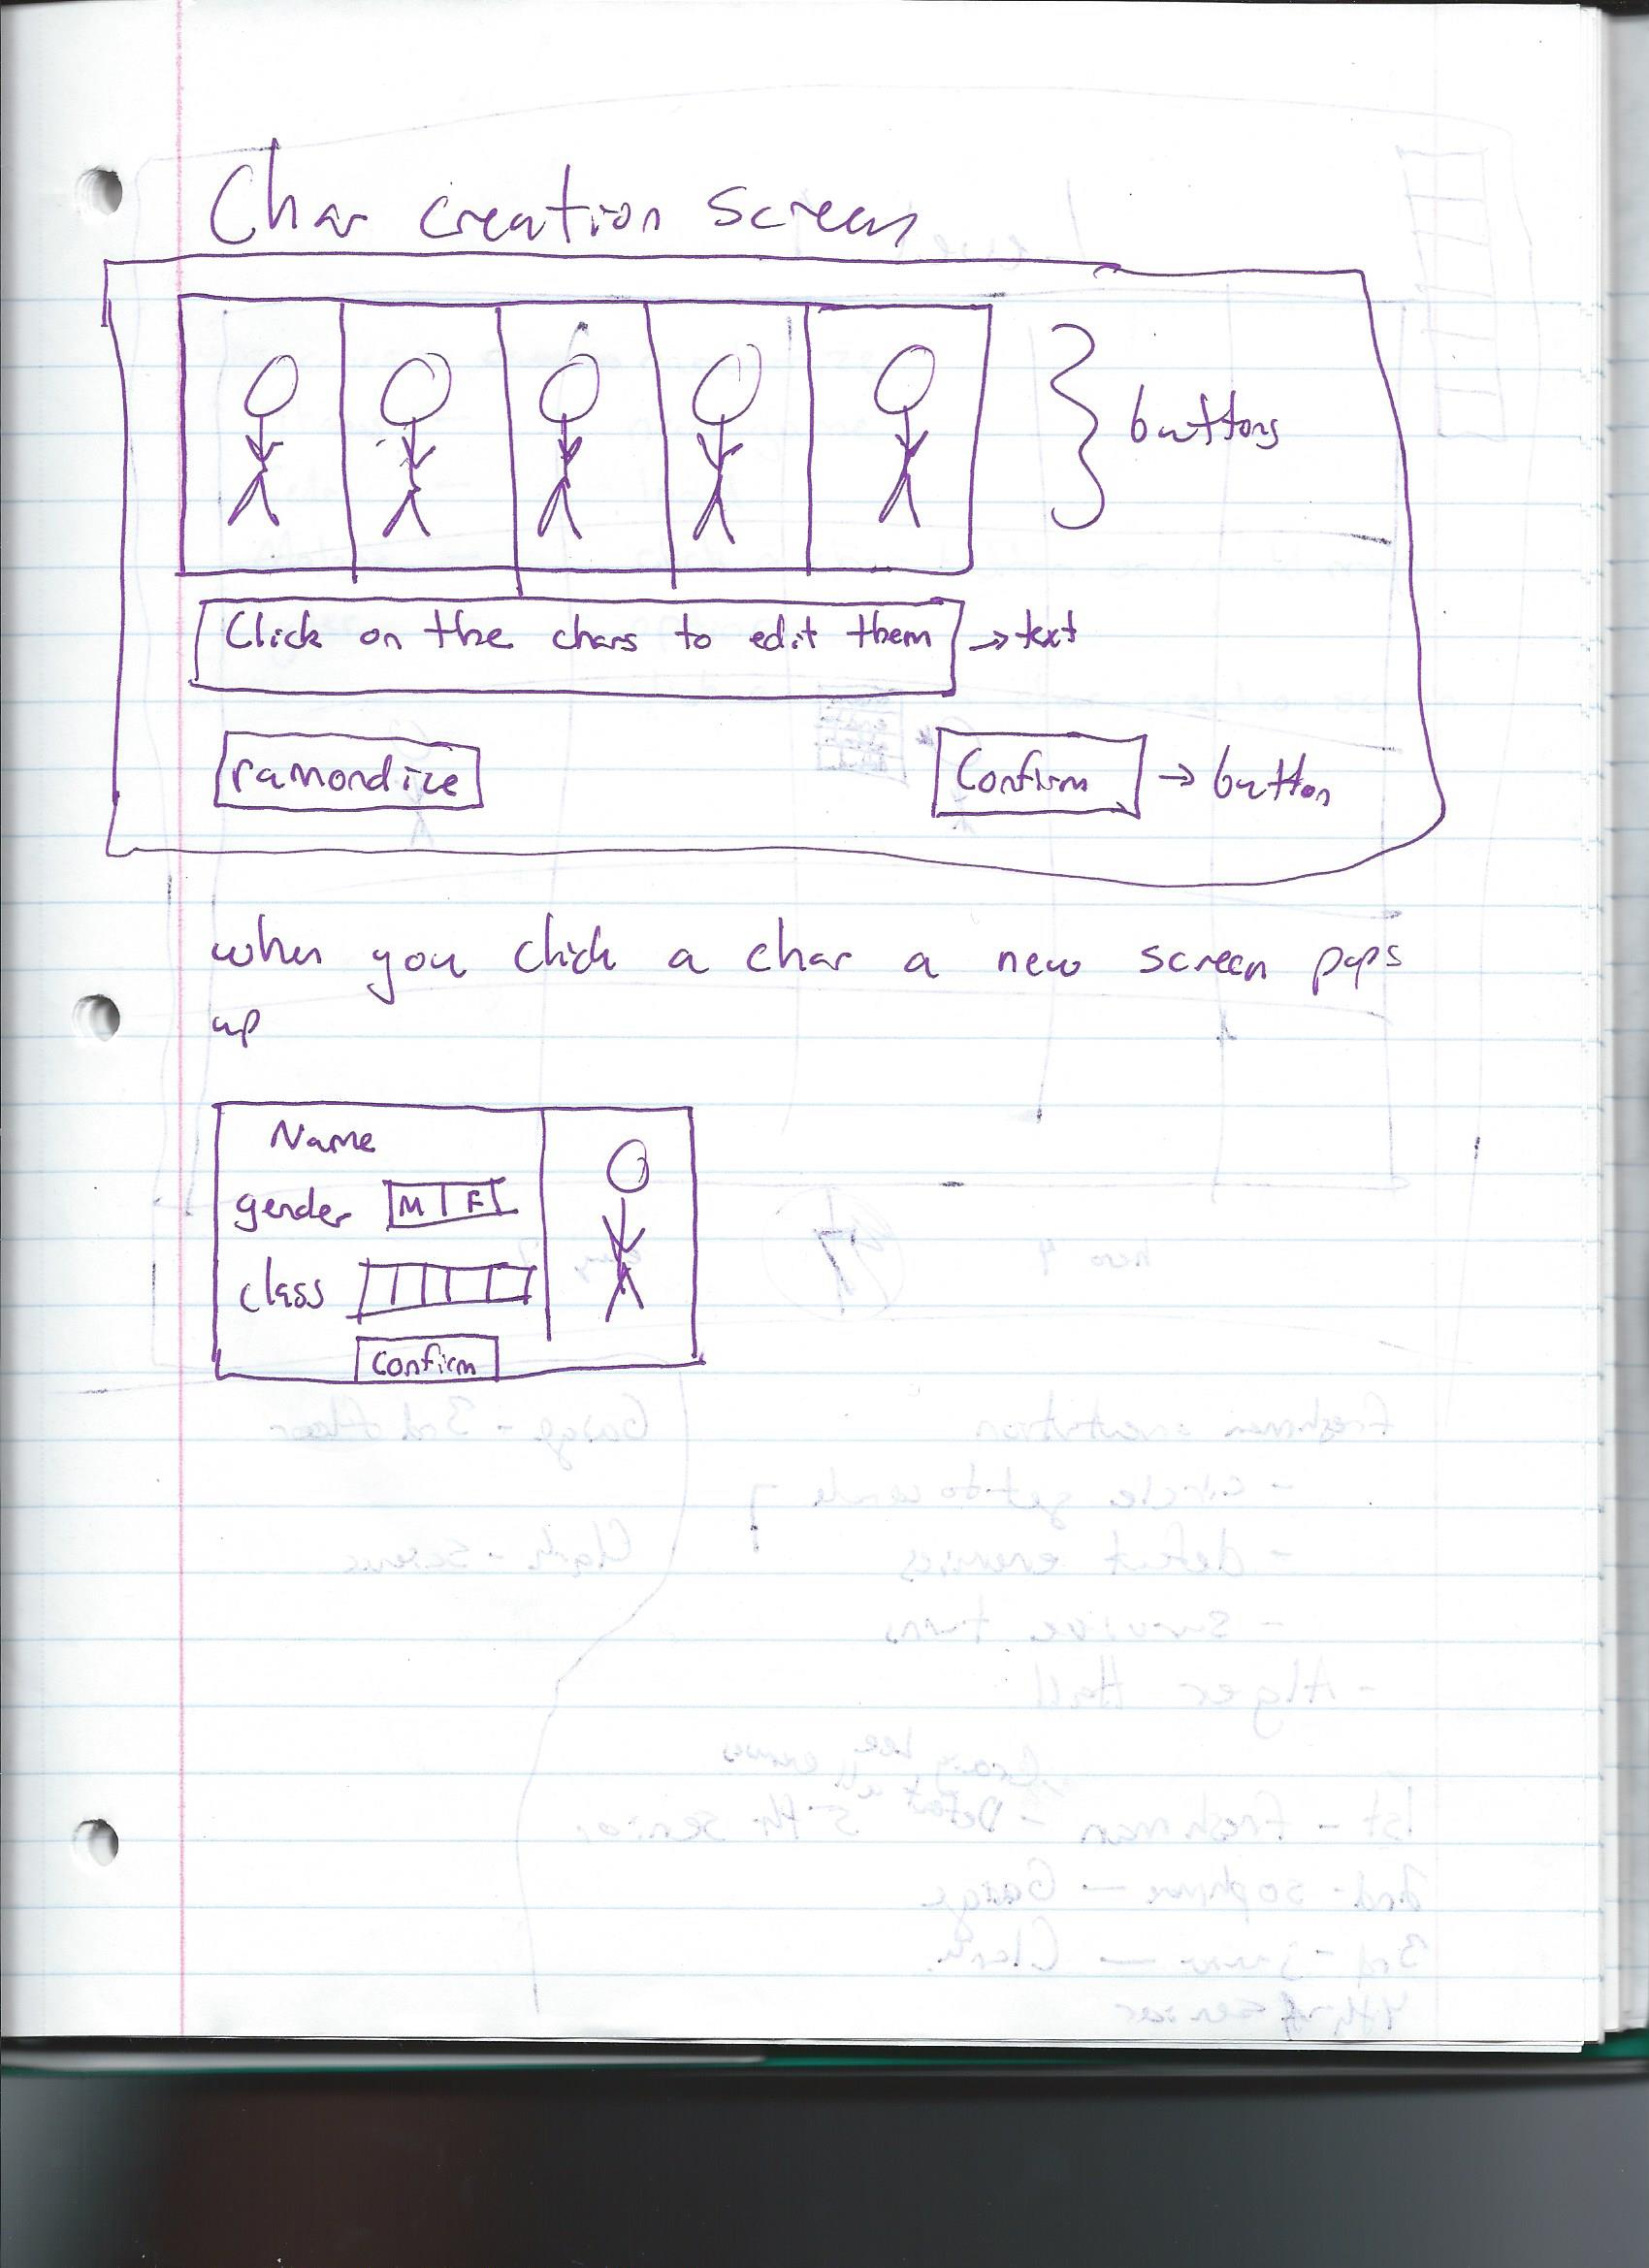 Char creation screen
buttons
Click on the chars to edit them → text
ramondize
Confirm → button
when you click a char a new screen pops
up
Name
gender M F
class
Confirm